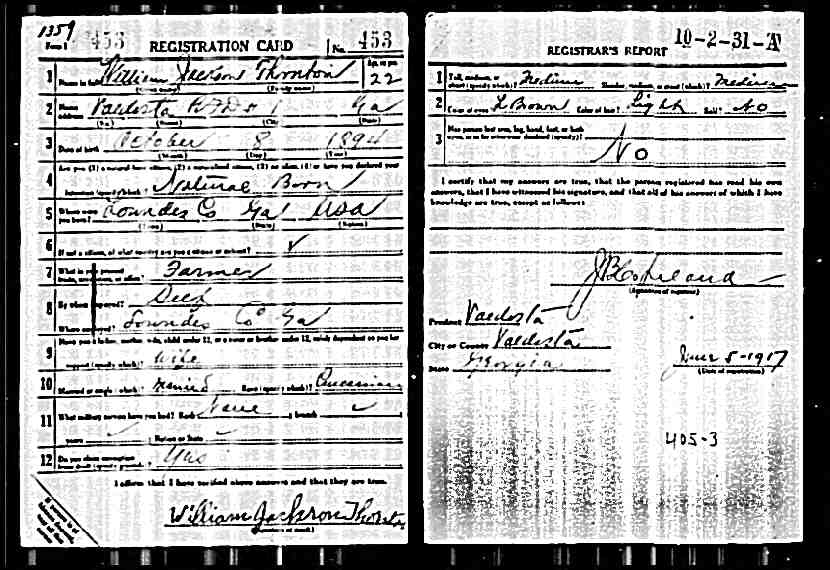 1359
Form 1 453 REGISTRATION CARD No. 453
1 Name in full William Jackson Thornton Age, in yrs. 22
(Given name) (Family name)
2 Home address Valdosta RFD # 1 Ga
(No.) (Street) (City) (State)
3 Date of birth October 8 1894
(Month) (Day) (Year)
4 Are you (1) a natural-born citizen, (2) a naturalized citizen, (3) an alien, (4) or have you declared your
intention (specify which)? Natural Born
5 Where were you born? Lowndes Co Ga USA
(Town) (State) (Nation)
6 If not a citizen, of what country are you a citizen or subject?
7 What is your present trade, occupation, or office? Farmer
8 By whom employed? Self
Where employed? Lowndes Co Ga
9 Have you a father, mother, wife, child under 12, or a sister or brother under 12, solely dependent on you for
support (specify which)? Wife
10 Married or single (which)? Married Race (specify which)? Caucasian
11 What military service have you had? Rank None ; branch
years ; Nation or State
12 Do you claim exemption from draft (specify grounds)? Yes
I affirm that I have verified above answers and that they are true.
William Jackson Thornton
(Signature or mark)
REGISTRAR'S REPORT 10-2-31-A
1 Tall, medium, or short (specify which)? Medium Slender, medium, or stout (which)? Medium
2 Color of eyes L Brown Color of hair Light Bald? No
3 Has person lost arm, leg, hand, foot, or both
No
I certify that my answers are true, that the person registered has read his own
answers, that I have witnessed his signature, and that all of his answers of which I have
knowledge are true, except as follows:
J B Copeland
(Signature of registrar)
Precinct Valdosta
City or County Valdosta
State Georgia June 5-1917
(Date of registration)
405-3